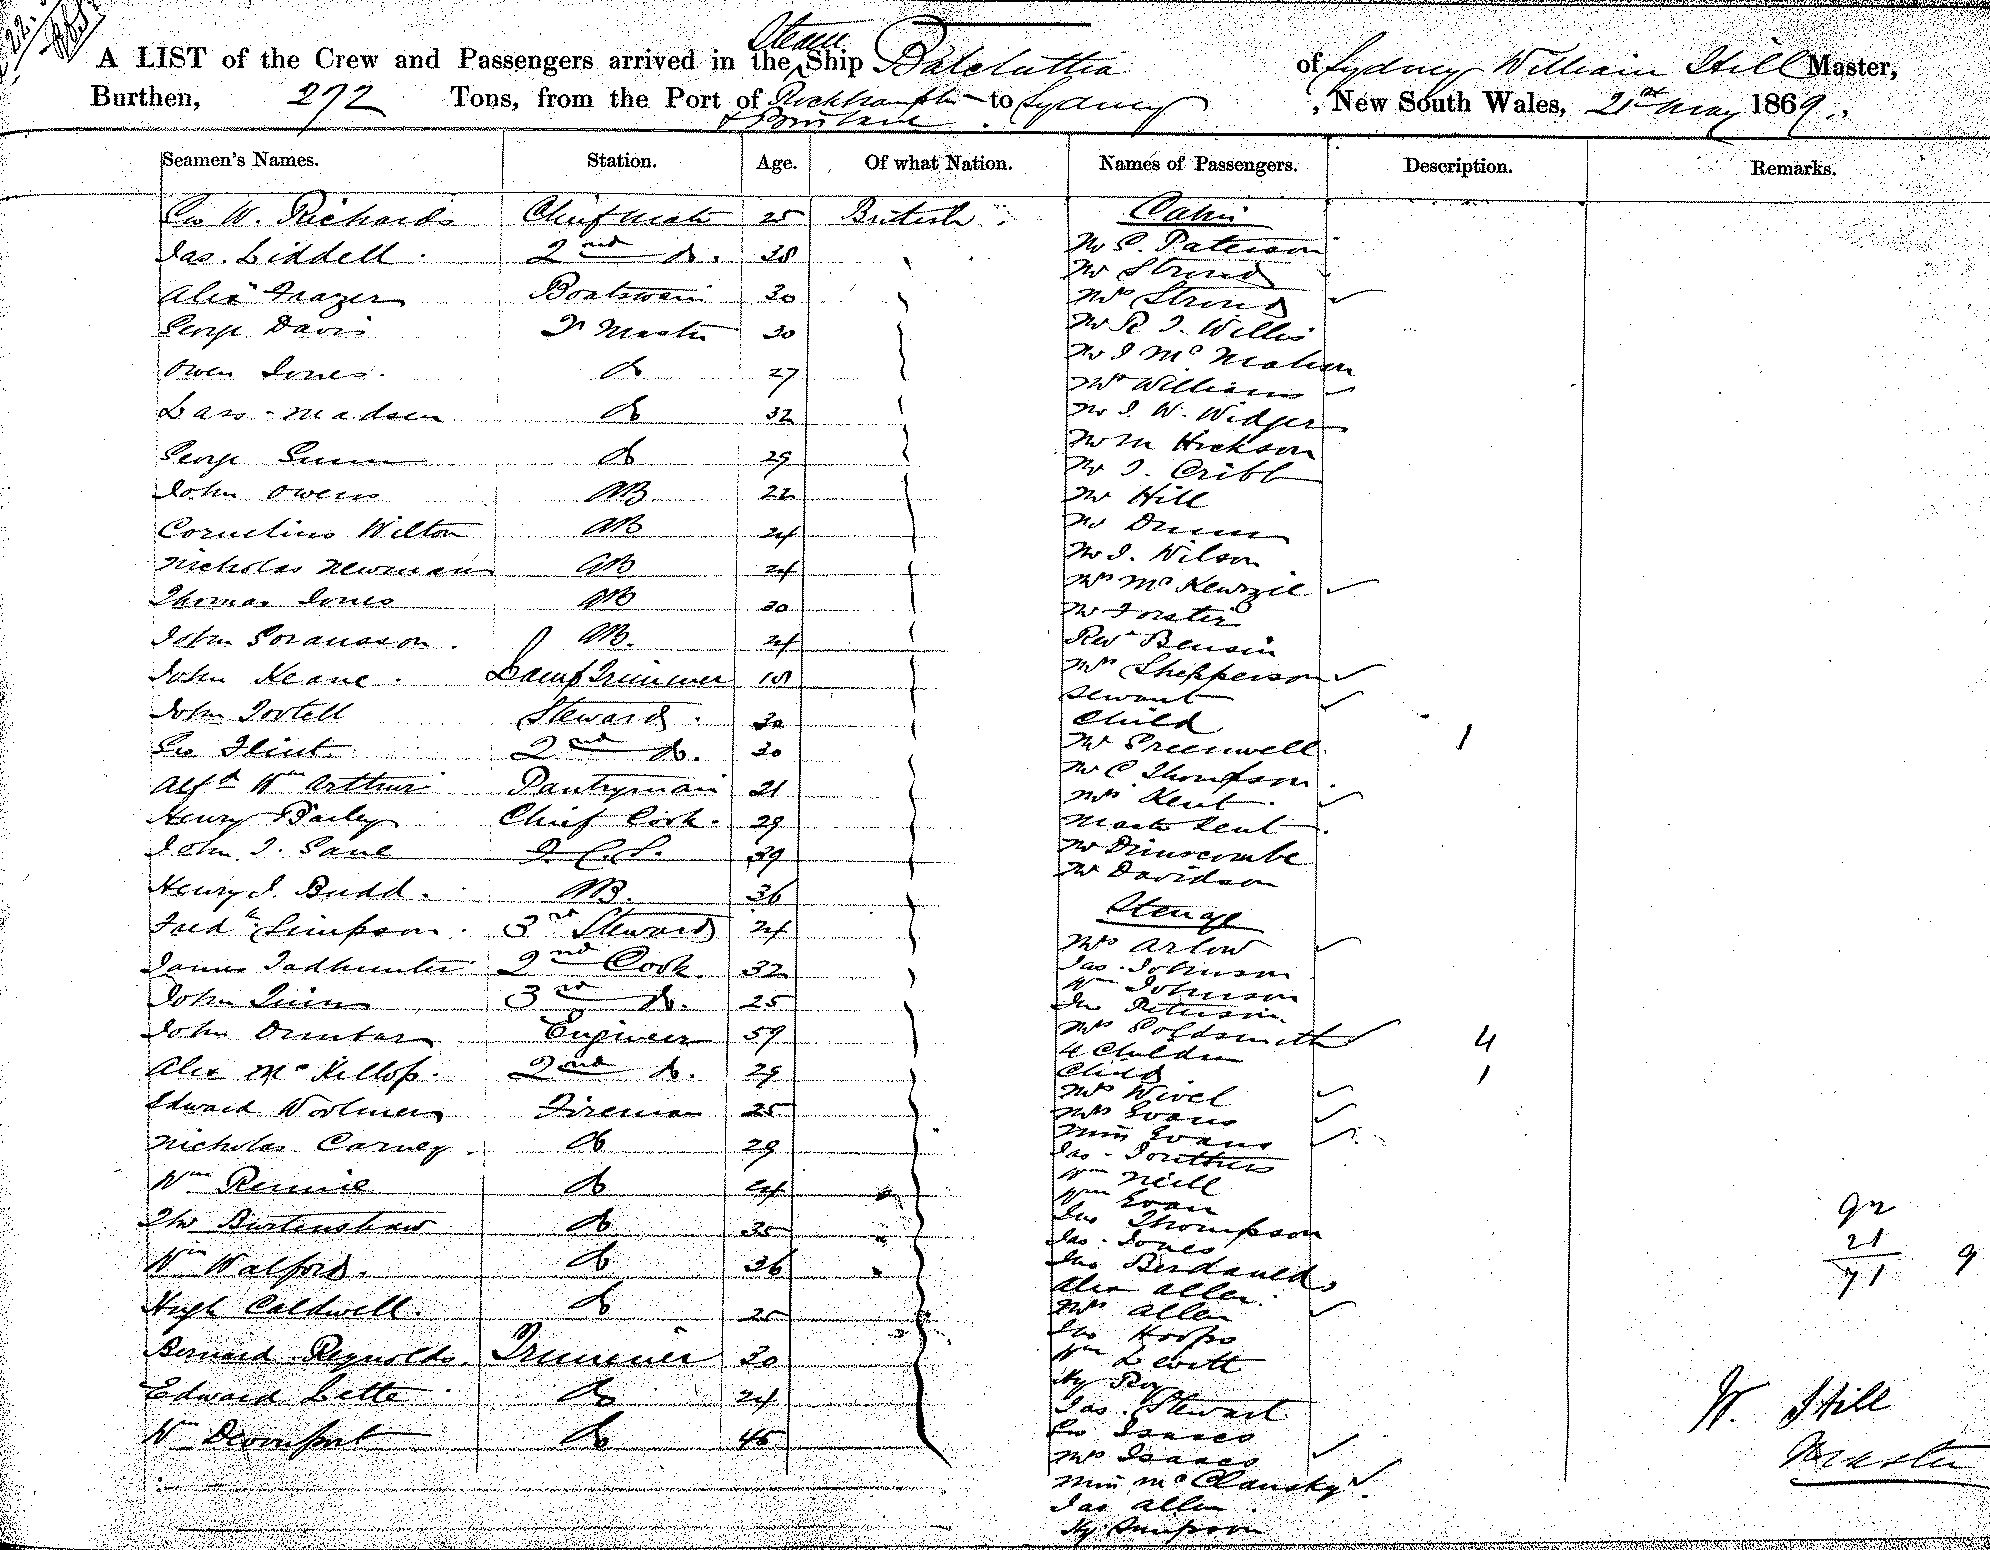 A LIST of the Crew and Passengers arrived in the Steam Ship Balclutha of Sydney William Hill Master,
Burthen, 272 Tons, from the Port of Rockhampton & Brisbane to Sydney, New South Wales, 21st May 1869.
Seamen's Names. Station. Age. Of what Nation. Names of Passengers. Description. Remarks.
Geo W. Richards Chief Mate 25 British Cabin
Jas. Liddell 2nd Do. 38 Mr C. Paterson
Mr Stroud
Alexr Frazer Boatswain 30 Mrs Stroud
George Davis Qr Master 30 Mr R J. Willis
Mr J McMahon
Owen Jones Do 27 Mr Williams
Lars Madsen Do 32 Mr J W. Widger
Mr M Hickson
George Gunn Do 29 Mr J. Cribb
John Owens AB 22 Mr Hill
Cornelius Wilton AB 24 Mr Dunn
Mr J. Wilson
Nicholas Newman AB 24 Mrs McKenzie
Thomas Jones AB 30 Mr Forster
John Soransson AB. 24 Revd Bensin
John Keane Lamp Trimmer 18 Mrs Shepperson
Servant
John Tortell Steward 30 Child 1
Geo Flint 2nd Do. 30 Mr Greenwell
Mr C Thompson
Alfd Wm Arthur Pantryman 21 Mrs Kent
Henry Bailey Chief Cook 29 Master Kent
John J. Sane 39 Mr Dunscombe
Henry J. Budd AB. 36 Mr Davidson
Steerage
Fredk Simpson 3rd Steward 24 Mrs Arlow
James Tadhunter 2nd Cook 32 Jas. Johnson
Wm Johnson
John Quin 3rd Do. 25 Jno Peterson
John Dunbar Engineer 59 Mrs Goldsmith
4 Children 4
Alex McKillop 2nd Do. 29 Child 1
Mrs Wivel
Edward Woolmer Fireman 25 Mrs Evans
Miss Evans
Nicholas Carney Do 29 Jas. Southers
Wm Rennie Do 24 Wm Neill
Wm Evan
Tho Burtenshaw Do 35 Jno Thompson 92
Jas. Jones 21
Wm Walford Do 36 Jno Berdaulds 71 9
Alex Allen
Hugh Caldwell Do 25 Mrs Allen
Jno Hoops
Bernard Reynolds Trimmer 30 Wm Levitt
Hy Roy
Edward Lette Do 24 Jas. Stewart W. Hill
Geo Isaacs
Wm Devonport Do 45 Mrs Isaacs Master
Miss McClansky
Jas Allen
Hy. Simpson